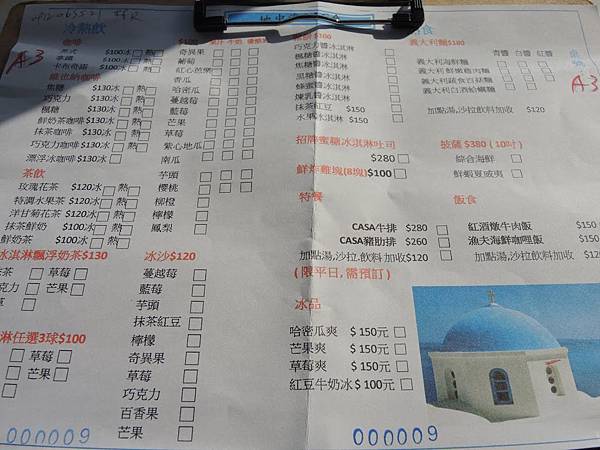 A3
冷熱飲
咖啡
美式 $100冰 熱
拿鐵 $100冰 熱
卡布奇諾 $100冰 熱
維也納咖啡
焦糖 $130冰 熱
巧克力 $130冰 熱
楓糖 $130冰 熱
鮮奶茶咖啡 $130冰 熱
抹茶咖啡 $130冰 熱
巧克力咖啡 $130冰 熱
漂浮冰咖啡 $130冰
茶飲
玫瑰花茶 $120冰 熱
特調水果茶 $120冰 熱
洋甘菊花茶 $120冰 熱
抹茶鮮奶 $100冰 熱
鮮奶茶 $100冰 熱
冰淇淋飄浮奶茶$130
草莓
芒果
淋任選3球$100
草莓
芒果
奇異果
葡萄
紅心芭樂
香瓜
哈密瓜
蔓越莓
藍莓
芒果
草莓
紫心地瓜
南瓜
芋頭
櫻桃
柳橙
檸檬
鳳梨
冰沙$120
蔓越莓
藍莓
芋頭
抹茶紅豆
檸檬
奇異果
草莓
巧克力
百香果
芒果
000009
鬆餅$100
巧克力醬冰淇淋
楓糖醬冰淇淋
焦糖醬冰淇淋
黑糖醬冰淇淋
蜂蜜醬冰淇淋
煉乳醬冰淇淋
抹茶紅豆 $150
水果冰淇淋 $150
招牌蜜糖冰淇淋吐司
$280
鮮炸雞塊(8塊)$100
特餐
CASA牛排 $280
CASA豬肋排 $260
加點湯,沙拉,飲料 加收$120
( 限平日, 需預訂 )
冰品
哈密瓜爽 $ 150元
芒果爽 $ 150元
草莓爽 $ 150元
紅豆牛奶冰 $ 100元
義大利麵$180
青醬 白醬 紅醬
義大利海鮮麵
義大利鮮嫩雞肉麵
義大利蔬食百菇麵
義大利白酒蛤蠣麵
加點湯,沙拉飲料加收 $120
A3
披薩 $380 ( 10吋 )
綜合海鮮
鮮蝦夏威夷
飯食
紅酒燉牛肉飯 $150
漁夫海鮮咖哩飯 $150
加點湯,沙拉,飲料加收 $120
000009